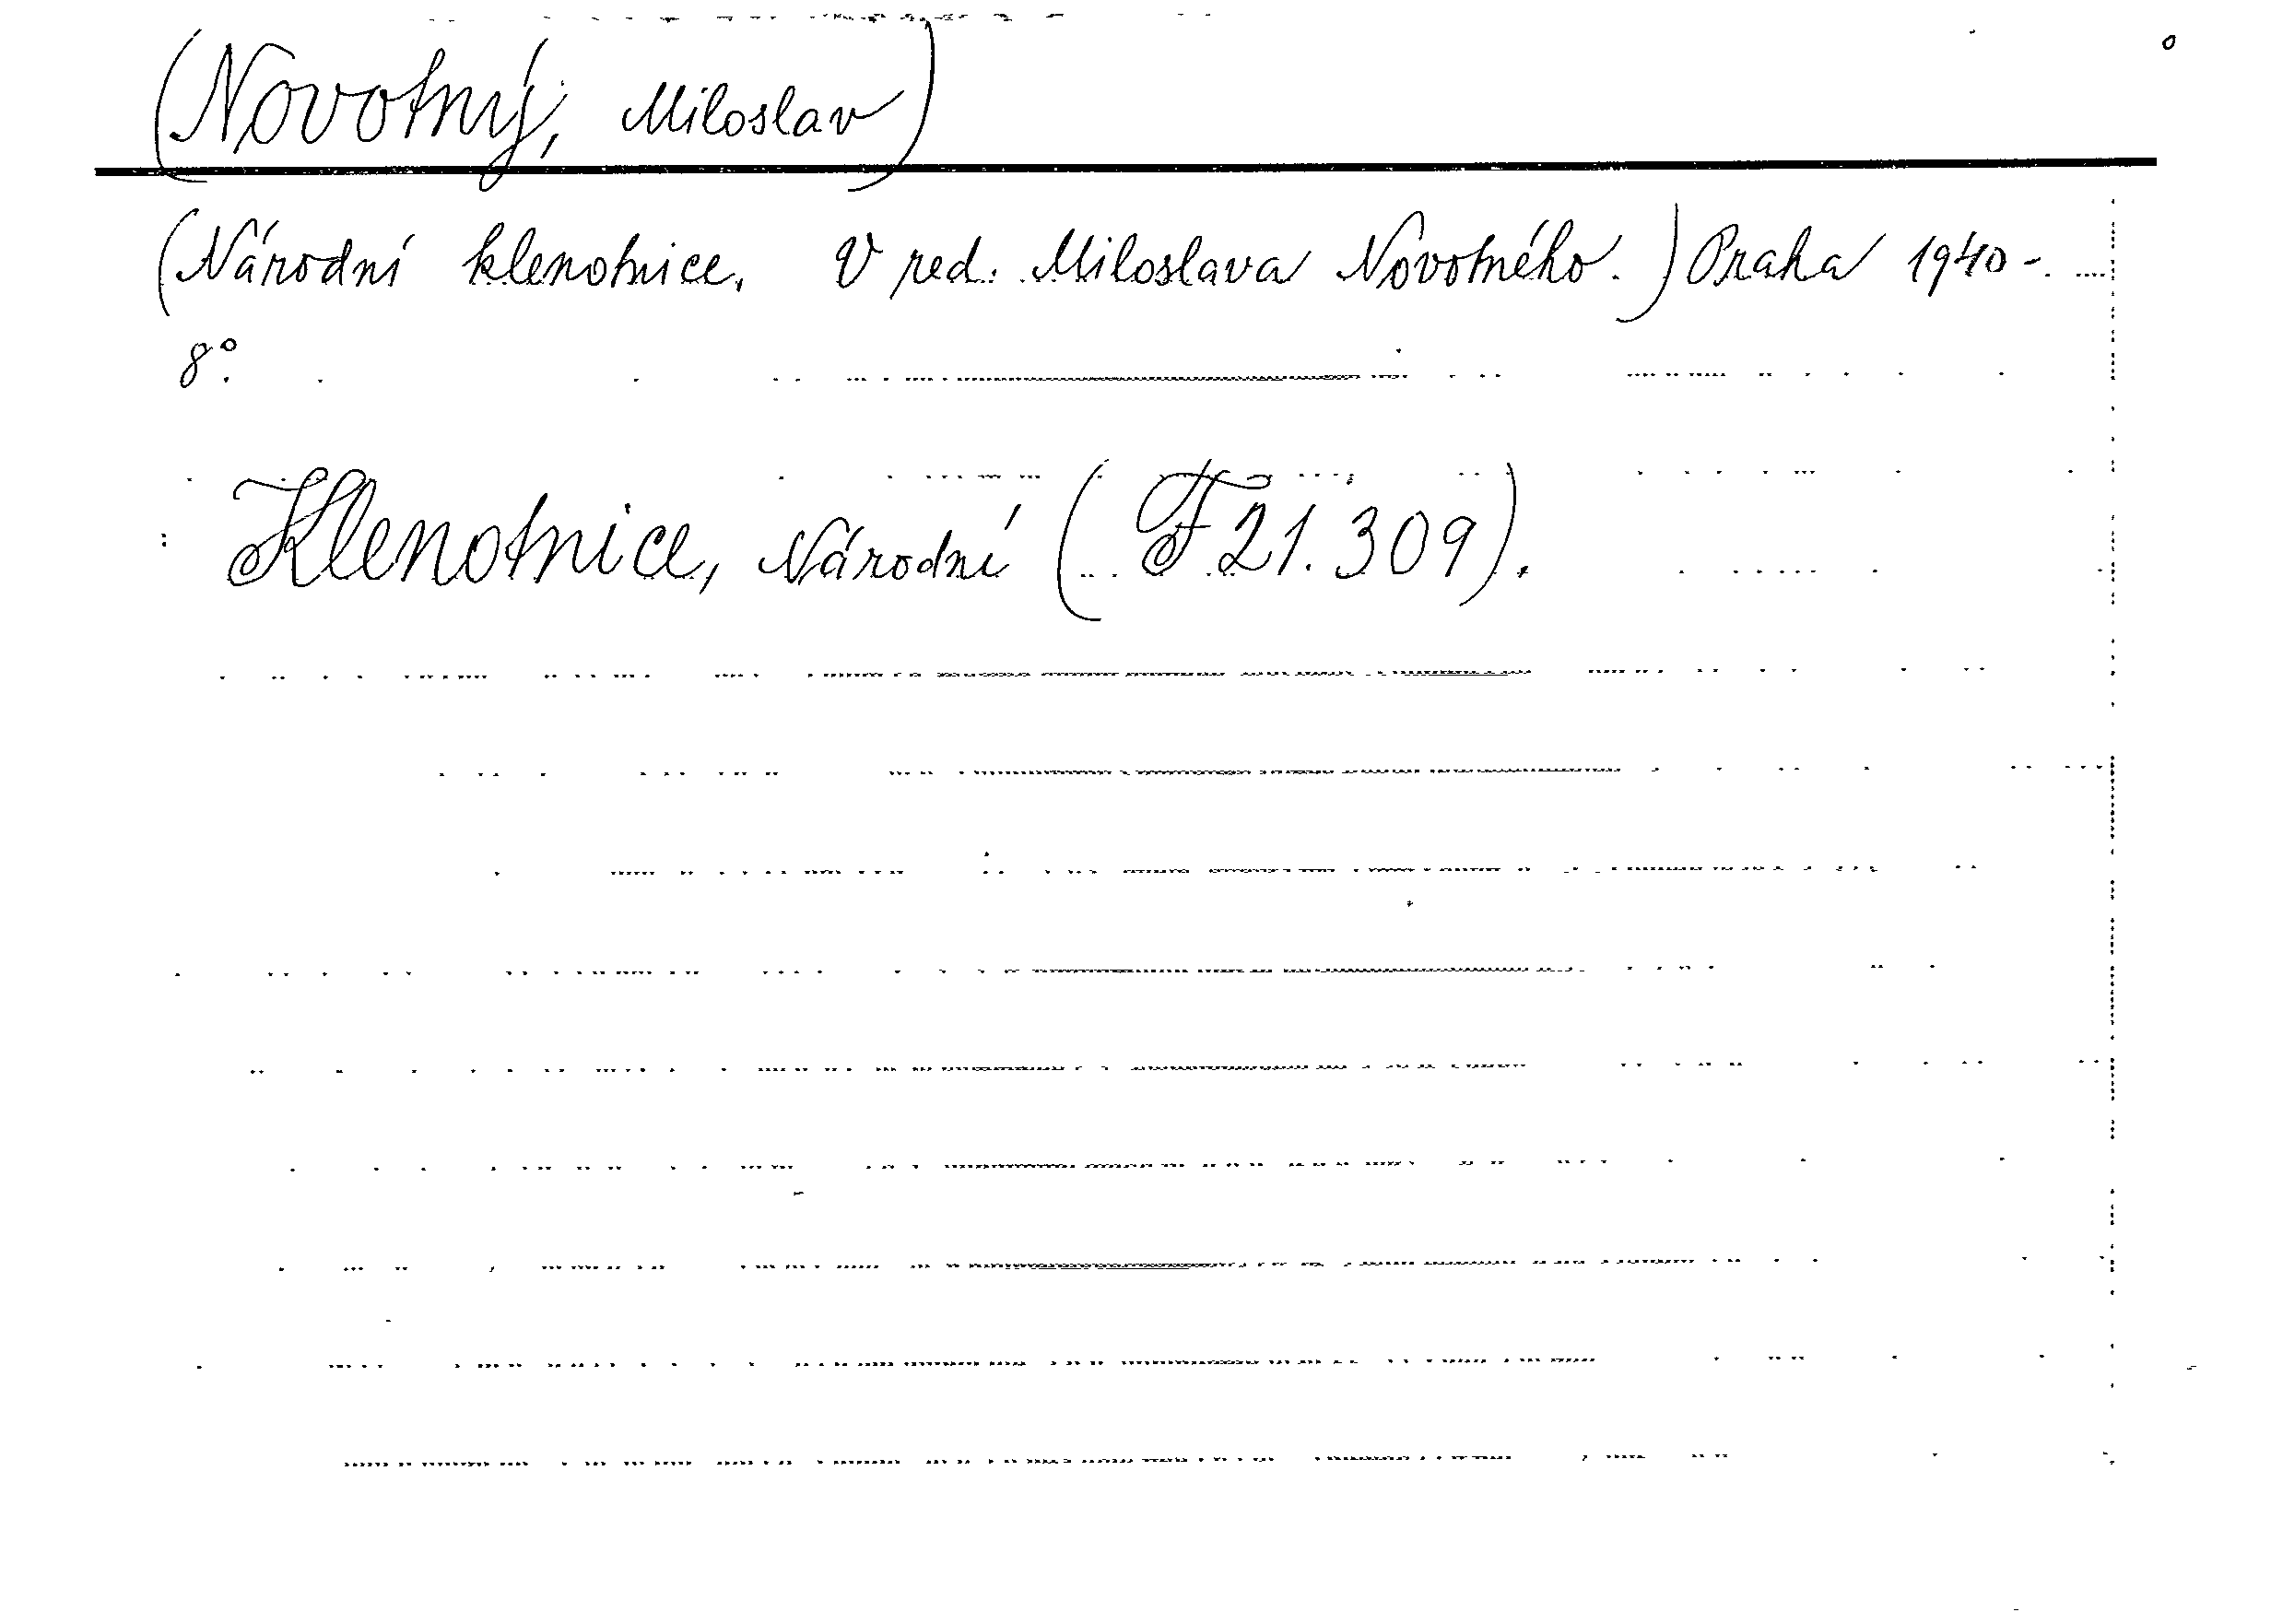 (Novotný, Miloslav)
(Národní klenotnice. V red. Miloslava Novotného.) Praha 1940-.
8°.
Klenotnice, Národní (F 21.309).